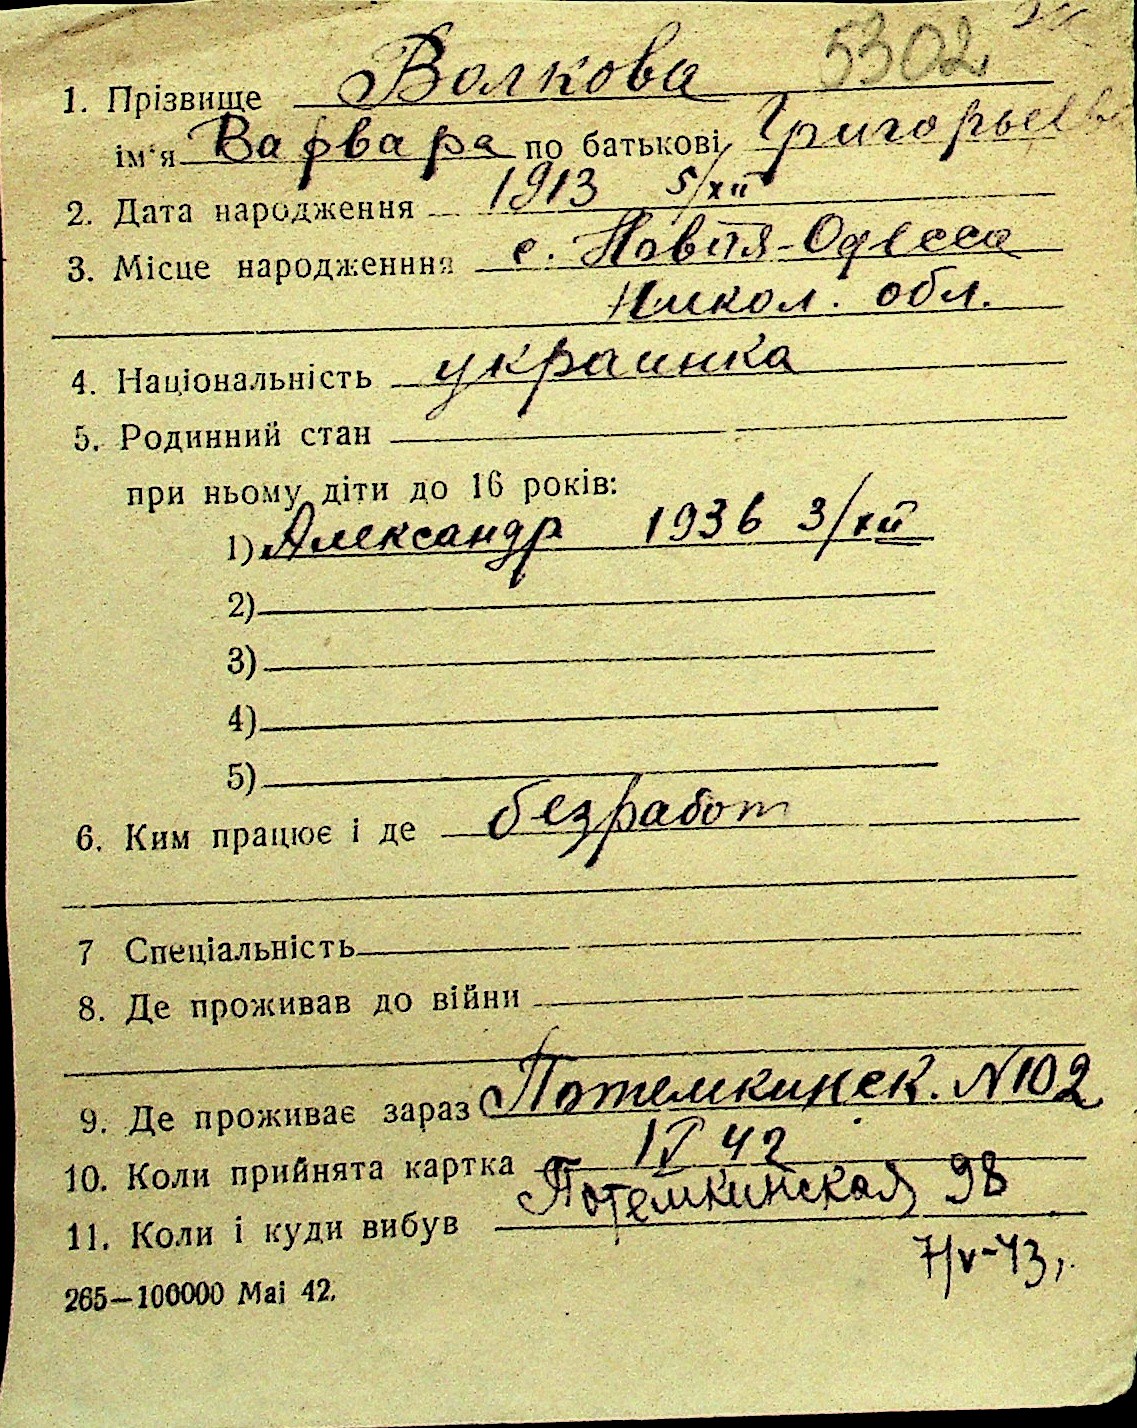 5302
1. Прізвище Волкова
ім'я Варвара по батькові Григорьевн
2. Дата народження 1913 5/XII
3. Місце народженння с. Новая-Одесса
Никол. обл.
4. Національність украинка
5. Родинний стан
при ньому діти до 16 років:
1) Александр 1936 3/XII
2)
3)
4)
5)
6. Ким працює і де безработ
7 Спеціальність
8. Де проживав до війни
9. Де проживає зараз Потемкинск. N102
10. Коли прийнята картка IV 42
11. Коли і куди вибув Потемкинская 98
7/V-43,
265—100000 Маі 42.